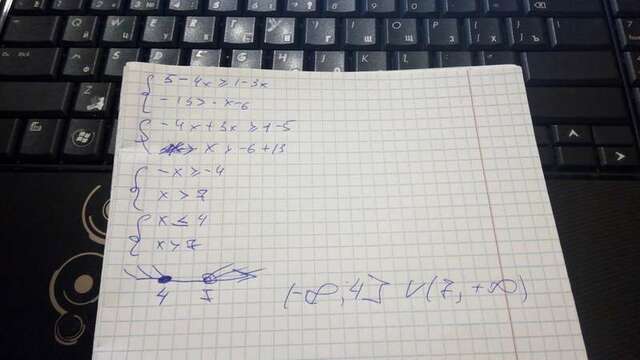 5 - 4x ≥ 1 - 3x
-13 > -x - 6
-4x + 3x ≥ 1 - 5
x > -6 + 13
-x ≥ -4
x > 7
x ≤ 4
x > 7
4 7
(-∞; 4] ∪ (7, +∞)